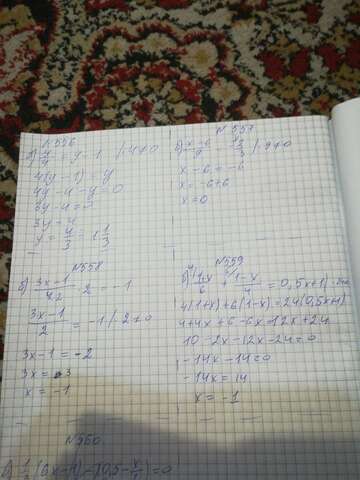 N 556
y/4 = y - 1 / 4≠0
4(y-1) = y
4y - 4 - y = 0
3y - 4 = 0
3y = 4
y = 4/3 = 1 1/3
N 557
x - 6 = -6
x = -6+6
x = 0
N 558
б) = -1
(3x-1)/2 = -1 / 2≠0
3x-1 = -2
3x = -3
x = -1
N 559
(1+x)/6 + (1-x)/4 = 0,5x+1
4(1+x)+6(1-x)=24(0,5x+1)
4+4x+6-6x=12x+24
10-2x-12x-24=0
-14x-14=0
-14x=14
x = -1
N 560